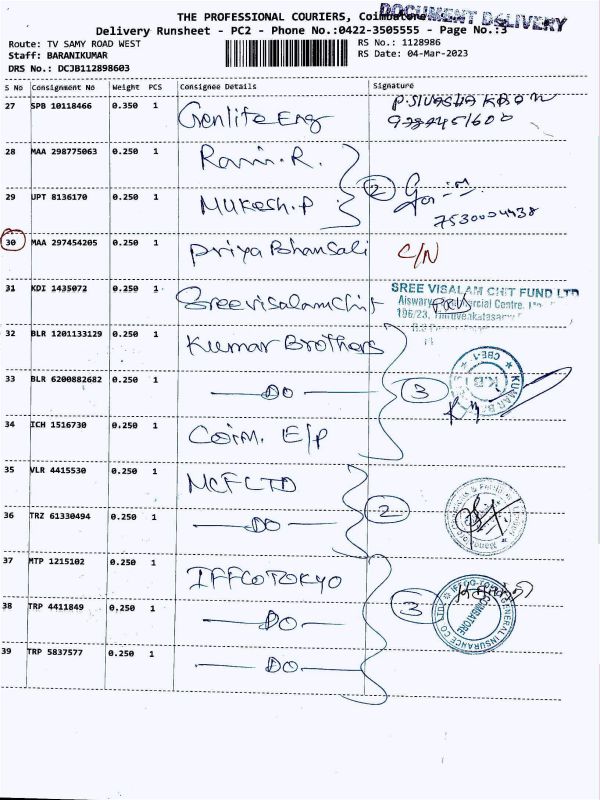 THE PROFESSIONAL COURIERS, Coimbatore
DOCUMENT DELIVERY
Delivery Runsheet - PC2 - Phone No.:0422-3505555 - Page No.:3
Route: TV SAMY ROAD WEST
RS No.: 1128986
Staff: BARANIKUMAR
RS Date: 04-Mar-2023
DRS No.: DCJB112898603
S No Consignment No Weight PCS Consignee Details Signature
27 SPB 10118466 0.350 1 Genlife Eng
28 MAA 298775063 0.250 1 Rani.R.
29 UPT 8136170 0.250 1 Mukesh.P 2
7530004438
30 MAA 297454205 0.250 1 Priya Bhansali C/N
31 KDI 1435072 0.250 1 Sreevisalamchit SREE VISALAM CHIT FUND LTD
106/23,
32 BLR 1201133129 0.250 1 Kumar Brothers
33 BLR 6200882682 0.250 1 DO 3 CBE-1 K.B
34 ICH 1516730 0.250 1 Coim. E/P
35 VLR 4415530 0.250 1 MCFLTD
36 TRZ 61330494 0.250 1 DO 2
37 MTP 1215102 0.250 1 IFFCOTOKYO
38 TRP 4411849 0.250 1 DO 3 GENERAL INSURANCE CO. LTD. COIMBATORE
39 TRP 5837577 0.250 1 DO